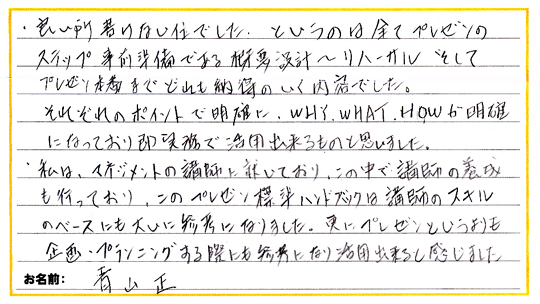 ・良い所書けない位でした。というのは全てプレゼンの
ステップ事前準備である概要設計〜リハーサル そして
プレゼン本番までどれも納得のいく内容でした。
それぞれのポイントで明確に、WHY、WHAT、HOWが明確
になっており即実務で活用出来るものと思いました。
・私は、マネジメントの講師に就いており、この中で講師の養成
も行っており、このプレゼン標準ハンドブックは講師のスキル
のベースにも大いに参考になりました。更にプレゼンというよりも
企画・プランニングする際にも参考になり活用出来ると感じました
お名前: 青山 正